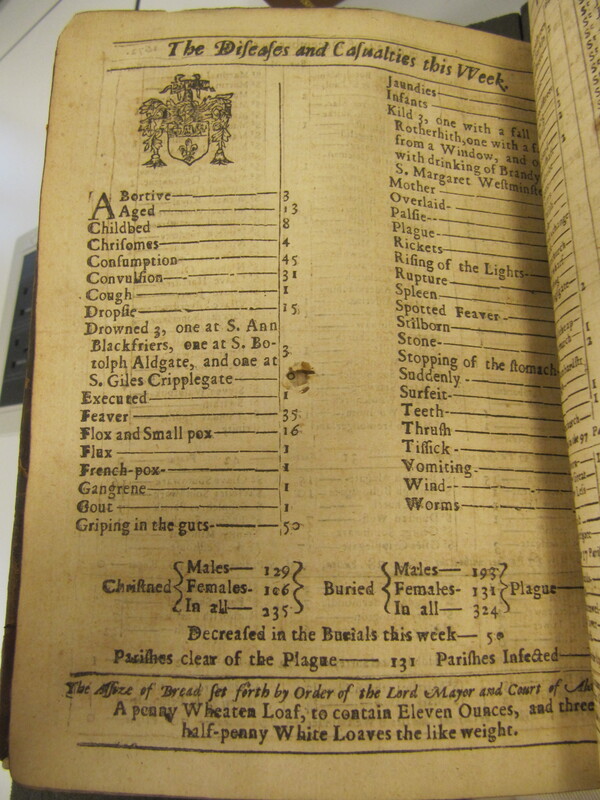 The Diſeaſes and Caſualties this Week.
ABortive 3
Aged 13
Childbed 8
Chriſomes 4
Conſumption 45
Convulſion 31
Cough 1
Dropſie 15
Drowned 3, one at S. Ann
Blackfriers, one at S. Bo-
tolph Aldgate, and one at 3
S. Giles Cripplegate
Executed 1
Feaver 35
Flox and Small pox 16
Flux 1
French-pox 1
Gangrene 1
Gout 1
Griping in the guts 50
Jaundies
Infants
Kild 3, one with a fall
Rotherhith, one with a
from a Window, and
with drinking of Brandy
S. Margaret Weſtminſte
Mother
Overlaid
Palſie
Plague
Rickets
Riſing of the Lights
Rupture
Spleen
Spotted Feaver
Stilborn
Stone
Stopping of the ſtomach
Suddenly
Surfeit
Teeth
Thruſh
Tiſſick
Vomiting
Wind
Worms
Chriſtned Males— 129
Females- 106
In all— 235
Buried Males— 193
Females- 131
In all— 324
Plague
Decreaſed in the Burials this week— 50
Pariſhes clear of the Plague— 131 Pariſhes Infected—
The Aſſize of Bread ſet forth by Order of the Lord Mayor and Court of
A penny Wheaten Loaf, to contain Eleven Ounces, and three
half-penny White Loaves the like weight.